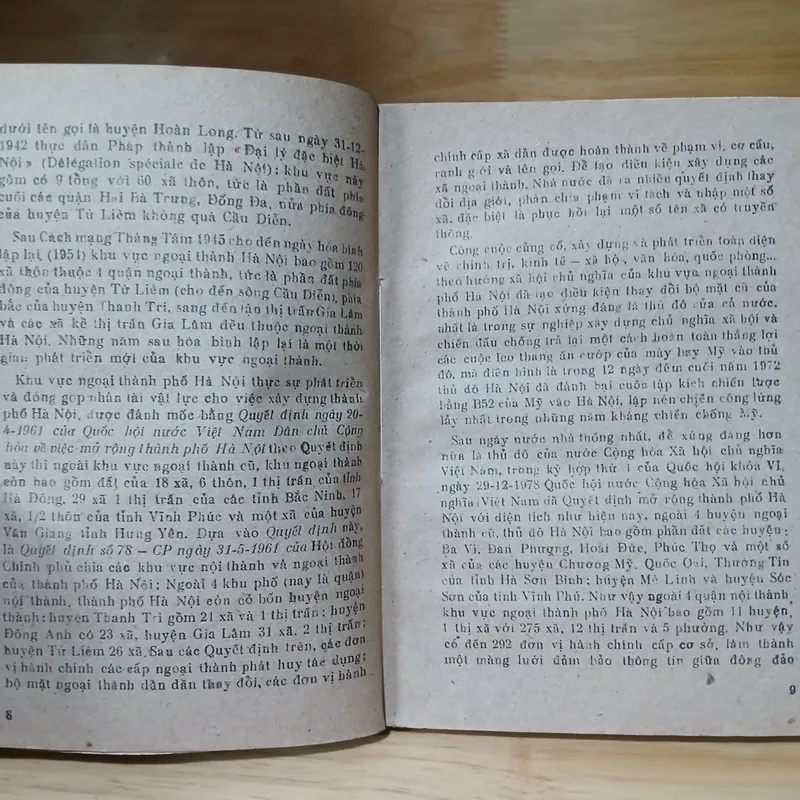 dưới tên gọi là huyện Hoàn Long. Từ sau ngày 31-12-
1942 thực dân Pháp thành lập «Đại lý đặc biệt Hà
Nội» (Délégation spéciale de Hà Nội); khu vực này
gồm có 9 tổng với 60 xã thôn, tức là phần đất phía
cuối các quận Hai Bà Trưng, Đống Đa, nửa phía đông
của huyện Từ Liêm không quá Cầu Diễn.
Sau Cách mạng Tháng Tám 1945 cho đến ngày hòa bình
lập lại, (1954) khu vực ngoại thành Hà Nội bao gồm 120
xã thôn thuộc 4 quận ngoại thành, tức là phần đất phía
đông của huyện Từ Liêm (cho đến sông Cầu Diễn), phía
bắc của huyện Thanh Trì, sang đến tận thị trấn Gia Lâm
và các xã kề thị trấn Gia Lâm đều thuộc ngoại thành
Hà Nội. Những năm sau hòa bình lập lại là một thời
gian phát triển mới của khu vực ngoại thành.
Khu vực ngoại thành phố Hà Nội thực sự phát triển
và đóng góp nhân tài vật lực cho việc xây dựng thành
phố Hà Nội, được đánh mốc bằng Quyết định ngày 20-
4-1961 của Quốc hội nước Việt Nam Dân chủ Cộng
hòa về việc mở rộng thành phố Hà Nội theo Quyết định
này thì ngoài khu vực thành cũ, khu ngoại thành
còn bao gồm đất của 18 xã, 6 thôn, 1 thị trấn của tỉnh
Hà Đông, 29 xã 1 thị trấn của các tỉnh Bắc Ninh, 17
xã, 1/2 thôn của tỉnh Vĩnh Phúc và một xã của huyện
Văn Giang tỉnh Hưng Yên. Dựa vào Quyết định này,
là Quyết định số 78 – CP ngày 31-5-1961 của Hội đồng
Chính phủ chia các khu vực nội thành và ngoại thành
của thành phố Hà Nội: Ngoài 4 khu phố (nay là quận)
nội thành, thành phố Hà Nội còn có bốn huyện ngoại
thành: huyện Thanh Trì gồm 21 xã và 1 thị trấn; huyện
Đông Anh có 23 xã, huyện Gia Lâm 31 xã, 2 thị trấn;
huyện Từ Liêm 26 xã. Sau các Quyết định trên, các đơn
vị hành chính các cấp ngoại thành phát huy tác dụng;
bộ mặt ngoại thành dần dần thay đổi, các đơn vị hành
8
chính cấp xã dần được hoàn thành về phạm vi, cơ cấu,
ranh giới và tên gọi. Để tạo điều kiện xây dựng các
xã ngoại thành. Nhà nước đã ra nhiều quyết định thay
đổi địa giới, phân chia phạm vi tách và nhập một số
xã, đặc biệt là phục hồi lại một số tên xã có truyền
thống.
Công cuộc củng cố, xây dựng và phát triển toàn diện
về chính trị, kinh tế – xã hộ, văn hóa, quốc phòng...
theo hướng xã hội chủ nghĩa của khu vực ngoại thành
phố Hà Nội đã tạo điều kiện thay đổi bộ mặt cũ của
thành phố Hà Nội xứng đáng là thủ đô của cả nước,
nhất là trong sự nghiệp xây dựng chủ nghĩa xã hội và
chiến đấu chống trả lại một cách hoàn toàn thắng lợi
các cuộc leo thang ăn cướp của máy bay Mỹ vào thủ
đô, mà điển hình là trong 12 ngày đêm cuối năm 1972
thủ đô Hà Nội đã đánh bại cuộc tập kích chiến lược
bằng B52 của Mỹ vào Hà Nội, lập nên chiến công lừng
lẫy nhất trong những năm kháng chiến chống Mỹ.
Sau ngày nước nhà thống nhất, để xứng đáng hơn
nữa là thủ đô của nước Cộng hòa Xã hội chủ nghĩa
Việt Nam, trong kỳ họp thứ 4 của Quốc hội khóa VI,
ngày 29-12-1978 Quốc hội nước Cộng hòa Xã hội chủ
nghĩa Việt Nam đã Quyết định mở rộng thành phố Hà
Nội với diện tích như hiện nay, ngoài 4 huyện ngoại
thành cũ, thủ đô Hà Nội bao gồm phần đất các huyện:
Ba Vì, Đan Phượng, Hoài Đức, Phúc Thọ và một số
xã của các huyện Chương Mỹ, Quốc Oai, Thường Tín
của tỉnh Hà Sơn Bình; huyện Mê Linh và huyện Sóc
Sơn của tỉnh Vĩnh Phú. Như vậy ngoài 4 quận nội thành,
khu vực ngoại thành phố Hà Nội bao gồm 11 huyện,
1 thị xã với 275 xã, 12 thị trấn và 5 phường. Như vậy
có đến 292 đơn vị hành chính cấp cơ sở, làm thành
một màng lưới đảm bảo thông tin giữa đông đảo
9